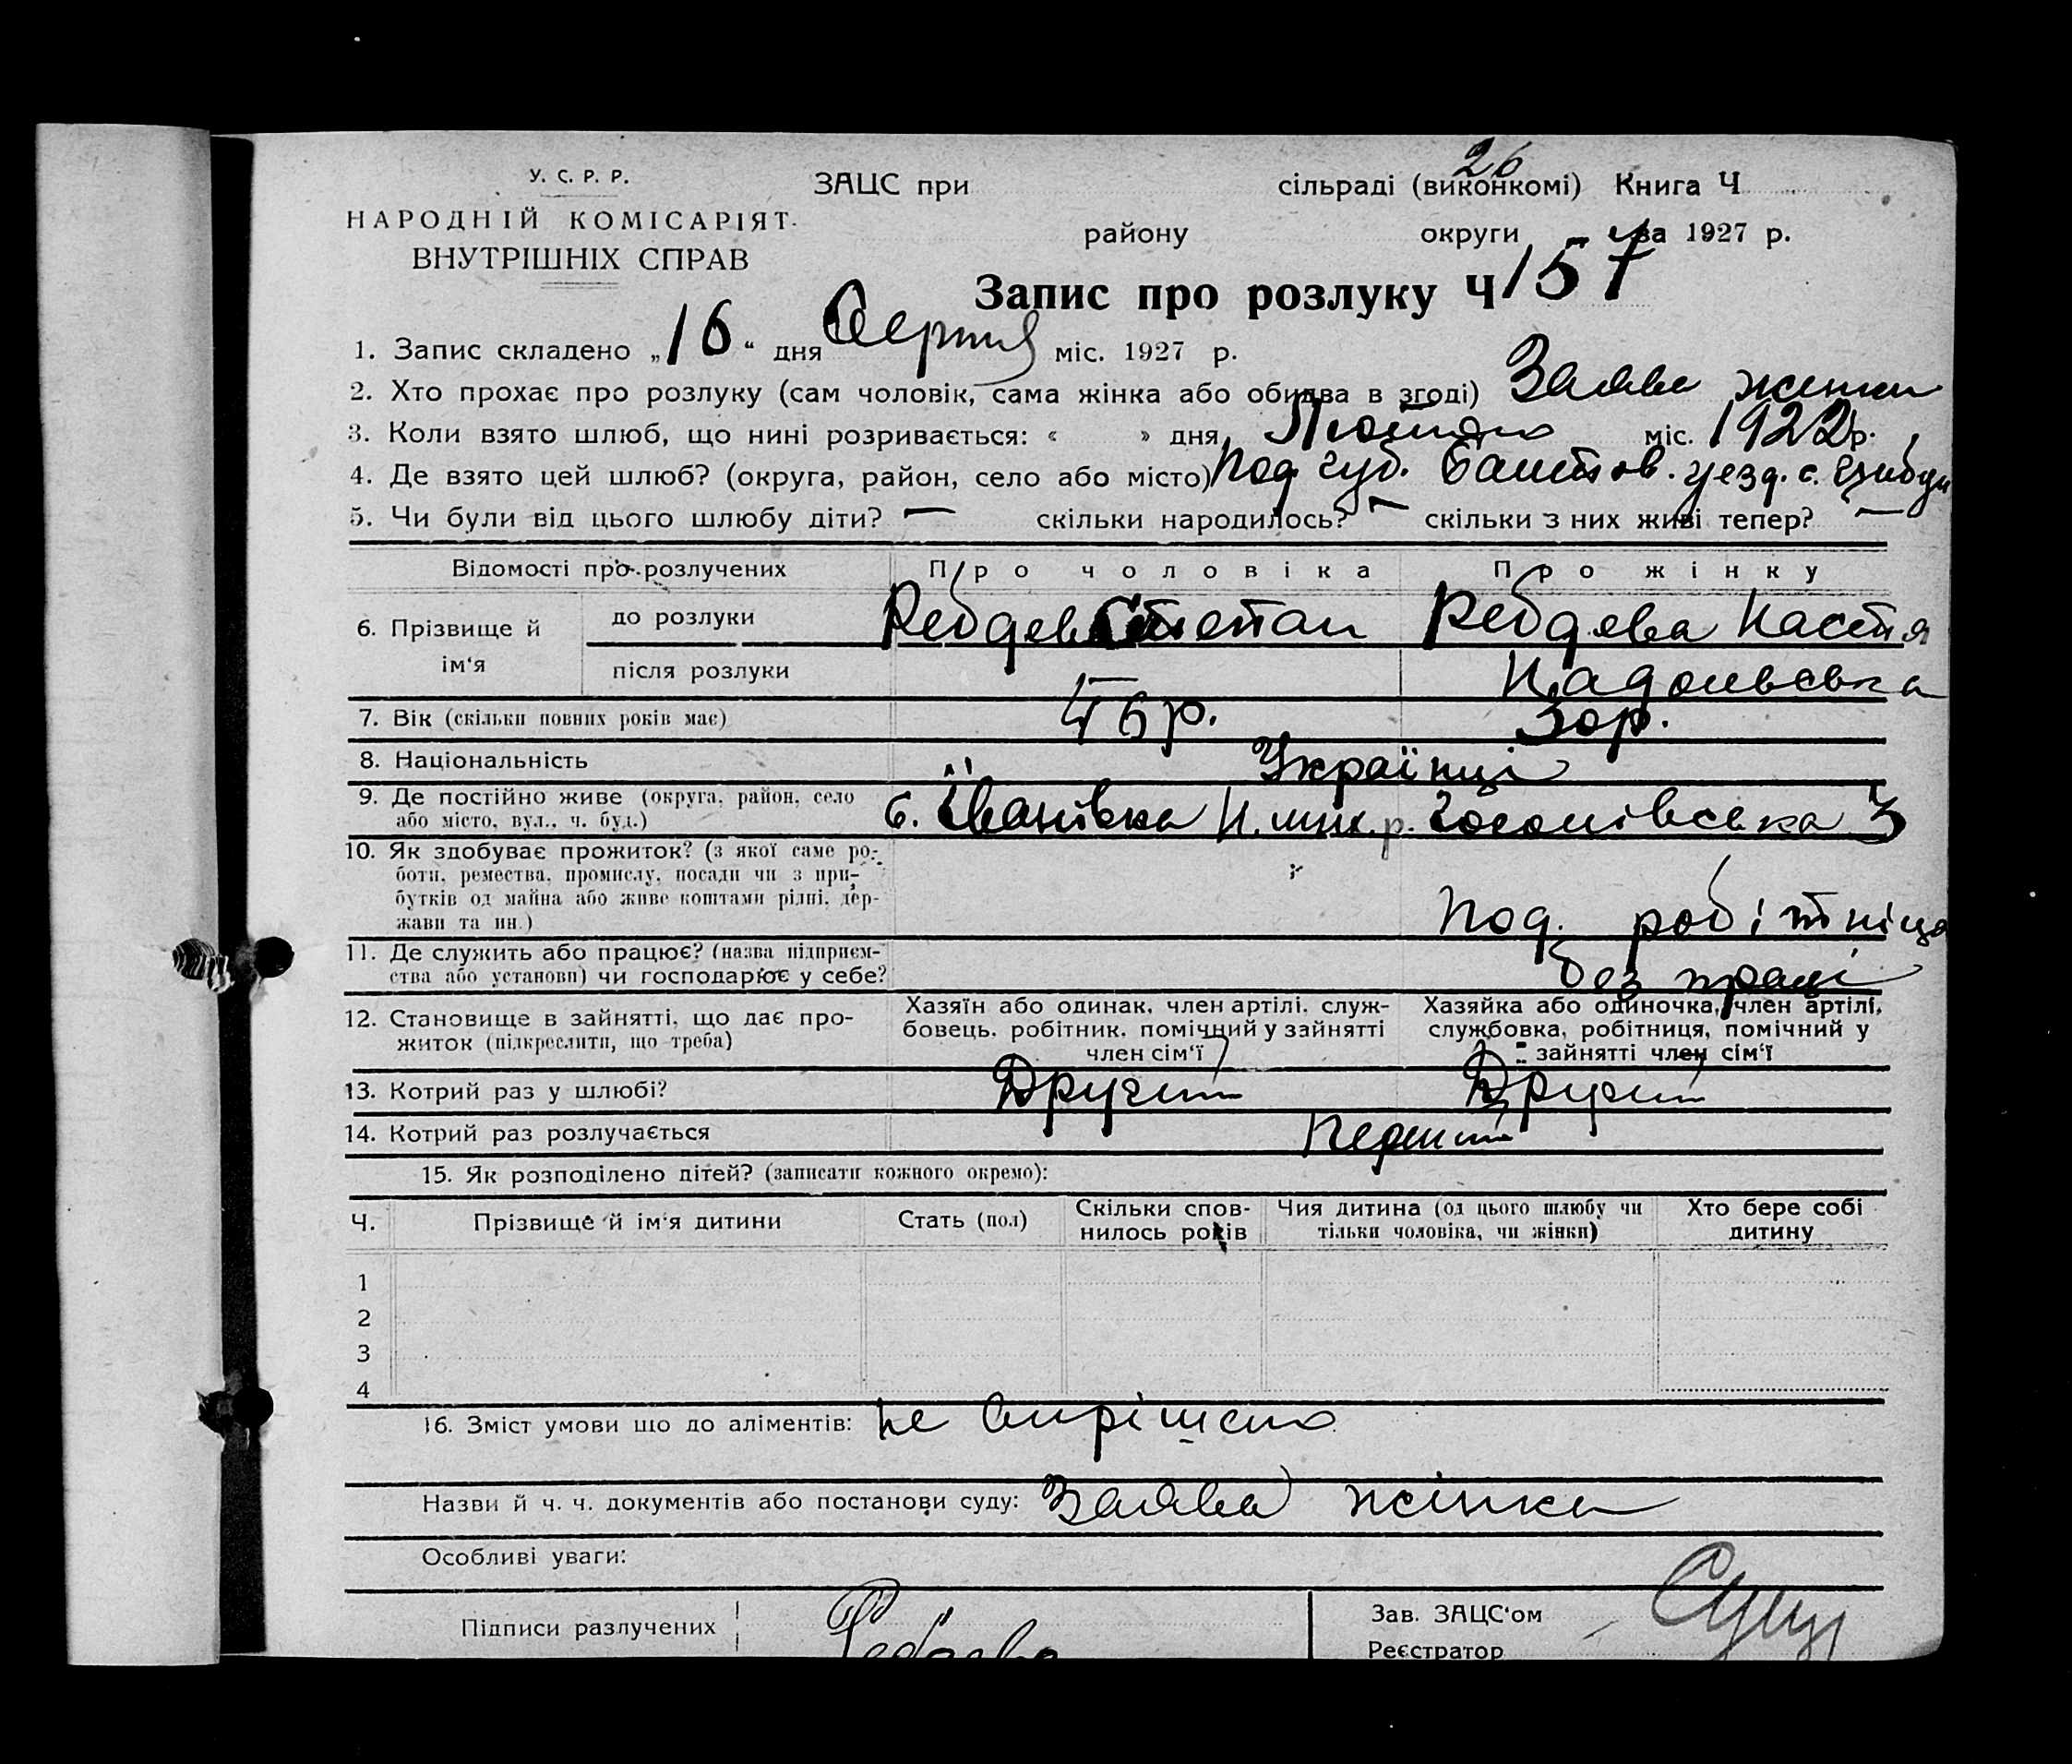 26
У. С. Р. Р.
ЗАЦС при сільраді (виконкомі) Книга Ч
НАРОДНІЙ КОМІСАРІЯТ
району округи за 1927 р.
ВНУТРІШНІХ СПРАВ
Запис про розлуку Ч 157
1. Запис складено „16“ дня Серпня міс. 1927 р.
2. Хто прохає про розлуку (сам чоловік, сама жінка або обидва в згоді) Заява женки
3. Коли взято шлюб, що нині розривається: « » дня Лютого міс. 1922 р.
4. Де взято цей шлюб? (округа, район, село або місто) Под губ. уезд. с.
5. Чи були від цього шлюбу діти? — скільки народилось? — скільки з них живі тепер? —
Відомості про розлучених Про чоловіка Про жінку
6. Прізвище й ім'я
до розлуки Ребдев Степан Ребдева Настя
після розлуки — Надольська
7. Вік (скільки повних років має) 46 р. 30 р.
8. Національність Українці
9. Де постійно живе (округа, район, село
або місто, вул., ч. буд.) с. Іванівка 3
10. Як здобуває прожиток? (з якої саме ро-
боти, ремества, промислу, посади чи з при-
бутків од майна або живе коштами рідні, дер-
жави та ин.) Под. робітниця
11. Де служить або працює? (назва підприєм-
ства або установи) чи господарює у себе? без праці
12. Становище в зайнятті, що дає про-
житок (підкреслити, що треба)
Хазяїн або одинак, член артілі, служ-
бовець, робітник, помічний у зайнятті
член сім'ї
Хазяйка або одиночка, член артілі,
службовка, робітниця, помічний у
зайнятті член сім'ї
13. Котрий раз у шлюбі? Другий Другий
14. Котрий раз розлучається Перший
15. Як розподілено дітей? (записати кожного окремо):
Ч. Прізвище й ім'я дитини Стать (пол) Скільки спов-
нилось років Чия дитина (од цього шлюбу чи
тільки чоловіка, чи жінки) Хто бере собі
дитину
1
2
3
4
16. Зміст умови що до аліментів: не вирішено
Назви й ч. ч. документів або постанови суду: Заява жінки
Особливі уваги:
Підписи разлучених Ребдева
Зав. ЗАЦС'ом
Реєстратор